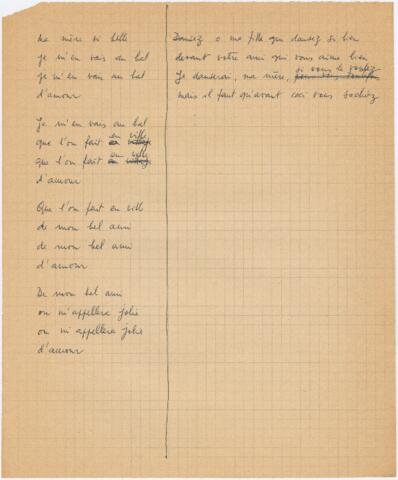 ma mère si belle
je m'en vais au bal
je m'en vais au bal
d'amour
Je m'en vais au bal
que l'on fait en ville
que l'on fait en ville
d'amour
Que l'on fait en ville
de mon bel ami
de mon bel ami
d'amour
De mon bel ami
on m'appellera Jolie
on m'appellera Jolie
d'amour
Dansez o ma fille que dansez si bien
devant votre ami qui vous aime bien
si vous le voulez
Je danserai, ma mère,
mais il faut qu'avant ceci vous sachiez